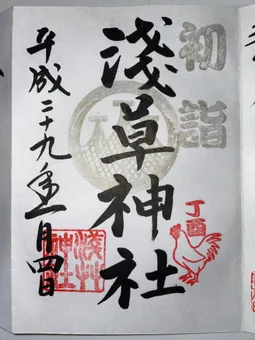 初詣
浅草神社
丁酉
平成二十九年一月四日
浅草
神社